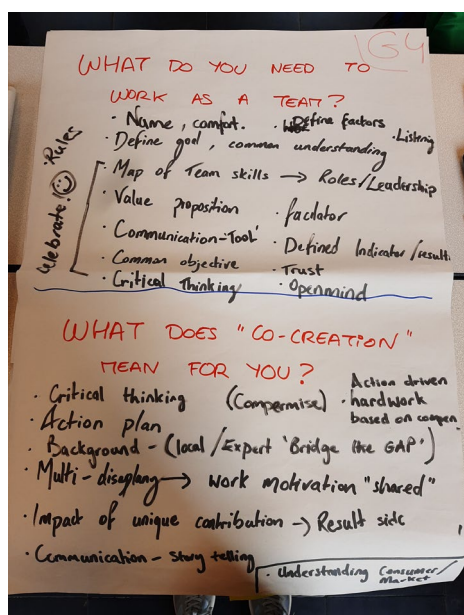 IG4
WHAT DO YOU NEED TO
WORK AS A TEAM?
· Name, comfort. · Define factors · Listening
· Define goal, common understanding
· Rules
Celebrate!
· Map of Team skills → Roles/Leadership
· Value proposition · facilator
· Communication-Tool' · Defined Indicator/result
· Common objective · Trust
· Critical Thinking · Openmind
WHAT DOES "CO-CREATION"
MEAN FOR YOU?
· Critical thinking (Compermise) · Action driven
hardwork
based on
· Action plan
· Background - (local/Expert 'Bridge the GAP')
· Multi- → work motivation "shared"
· Impact of unique contribution → Result side
· Communication - story telling
· Understanding Consumer/
Market